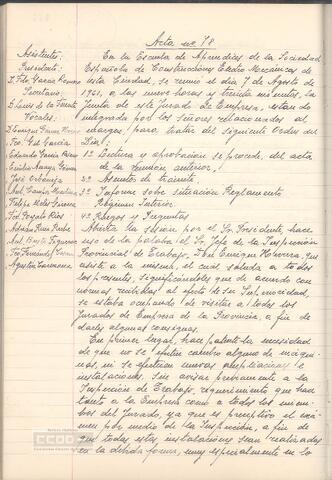 Acta nº 78
Asistentes:
Presidente:
D. Fdo. García
Secretario
D. Luis de la Fuente
Vocales:
Fco. Gil García
Eduardo García
Emilio Anaya Gómez
José Orbaneja
Felipe Moles
Fco. Pozo Ríos
Adrián Ruiz
Ant. Figueroa
Fco. Fernández
Agustín Carmona
En la Escuela de Aprendices de la Sociedad
Española de Construcciones Electro Mecánicas de
esta Ciudad, se reunió el día 7 de Agosto de
1961, a las nueve horas y treinta minutos, la
Junta de este Jurado de Empresa, estando
integrada por los señores relacionados al
margen, para tratar del siguiente Orden del
Día:
1º Lectura y aprobación si procede, del acta
de la reunión anterior.
2º Asuntos de trámite
3º Informe sobre situación Reglamento
Régimen Interior
4º Ruegos y Preguntas
Abierta la sesión por el Sr. Presidente hace
uso de la palabra el Sr. Jefe de la Inspección
Provincial de Trabajo, Don Enrique Herrera, que
asiste a la misma, el cual saluda a todos
los presentes, significándoles que de acuerdo con
normas recibidas al efecto de su Superioridad,
se estaba ocupando de visitar a todos los
Jurados de Empresa de la Provincia, a fin de
darles algunas consignas.
En primer lugar, hace patente la necesidad
de que no se efectúe cambio alguno de máqui-
nas, ni se efectúen nuevas ampliaciones e
instalaciones, sin avisar previamente a la
Inspección de Trabajo, requerimiento que hace
tanto a la Empresa como a todos los miem-
bros del Jurado, ya que es preceptivo el exá-
men por medio de la Inspección, a fin de
que todas estas instalaciones sean realizadas
en la debida forma, muy especialmente en lo
CCOO